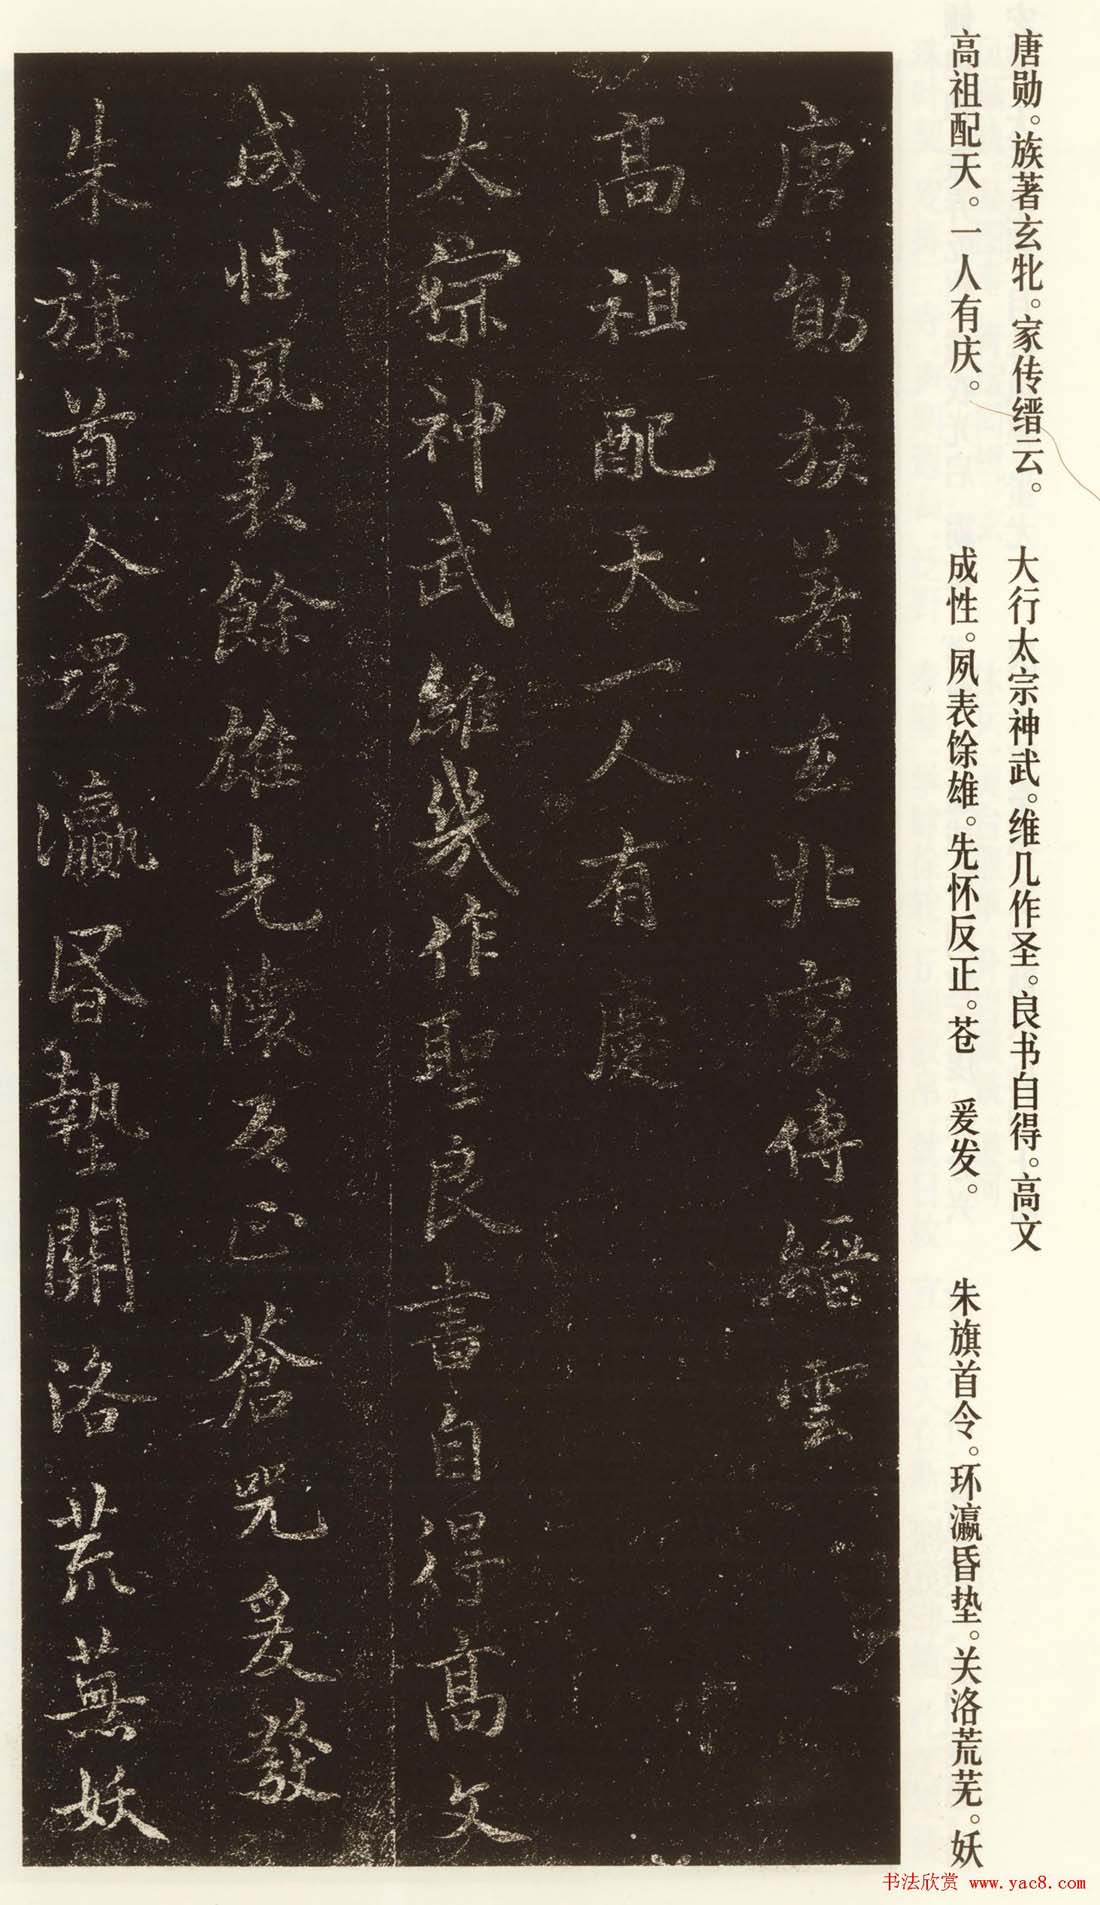 唐勋。族著玄牝。家传缙云。
高祖配天。一人有庆。
大行太宗神武。维几作圣。良书自得。高文
成性。夙表馀雄。先怀反正。苍　爰发。
朱旗首令。环瀛昏垫。关洛荒芜。妖
唐勛族著玄牝家傳縉雲
高祖配天一人有慶
太宗神武維幾作聖良書自得高文
成性夙表餘雄先懷反正蒼兕爰發
朱旗首令環瀛昏墊關洛荒蕪妖
书法欣赏 www.yac8.com